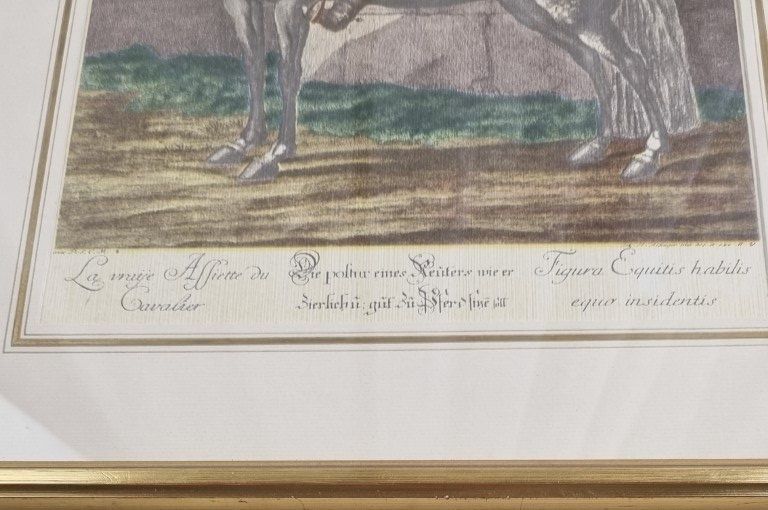 La vraye Assiette du
Cavalier
Die postur eines Reüters wie er
Zierlich ü: güt Zü Pferd size soll
Figura Equitis habilis
equo insidentis